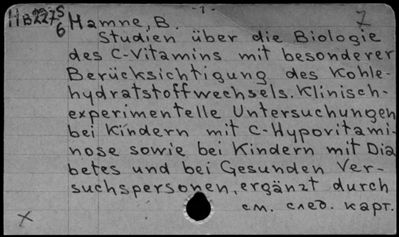 - 1 -
7
HB 2275
6
Hamne, B.
Studien über die Biologie
des C-Vitamins mit besonderer
Berücksichtigung des Kohle-
hydratstoffwechsels. Klinisch-
experimentelle Untersuchungen
bei Kindern mit C-Hypovitami-
nose sowie bei Kindern mit Dia
betes und bei Gesunden Ver-
suchspersonen, ergänzt durch
см. след. карт.
x